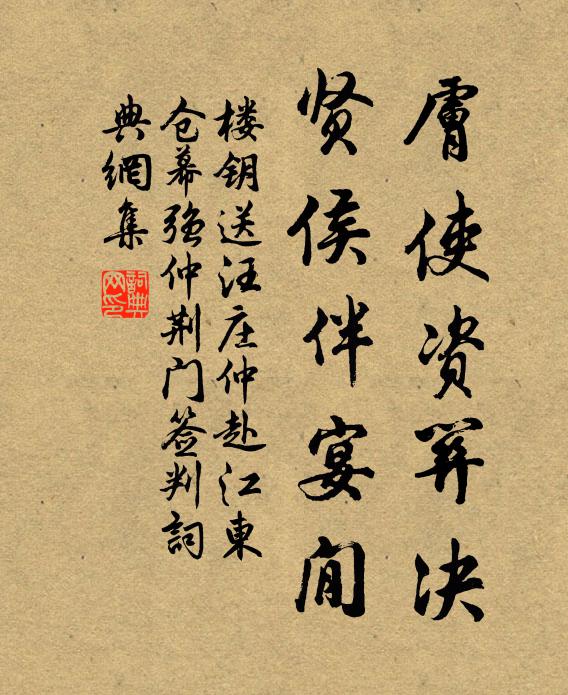 膚使资筭决
贤侯伴宴閒
楼钥送汪庄仲赴江東
仓幕强仲荆门签判詞
典網集
詞典
网印